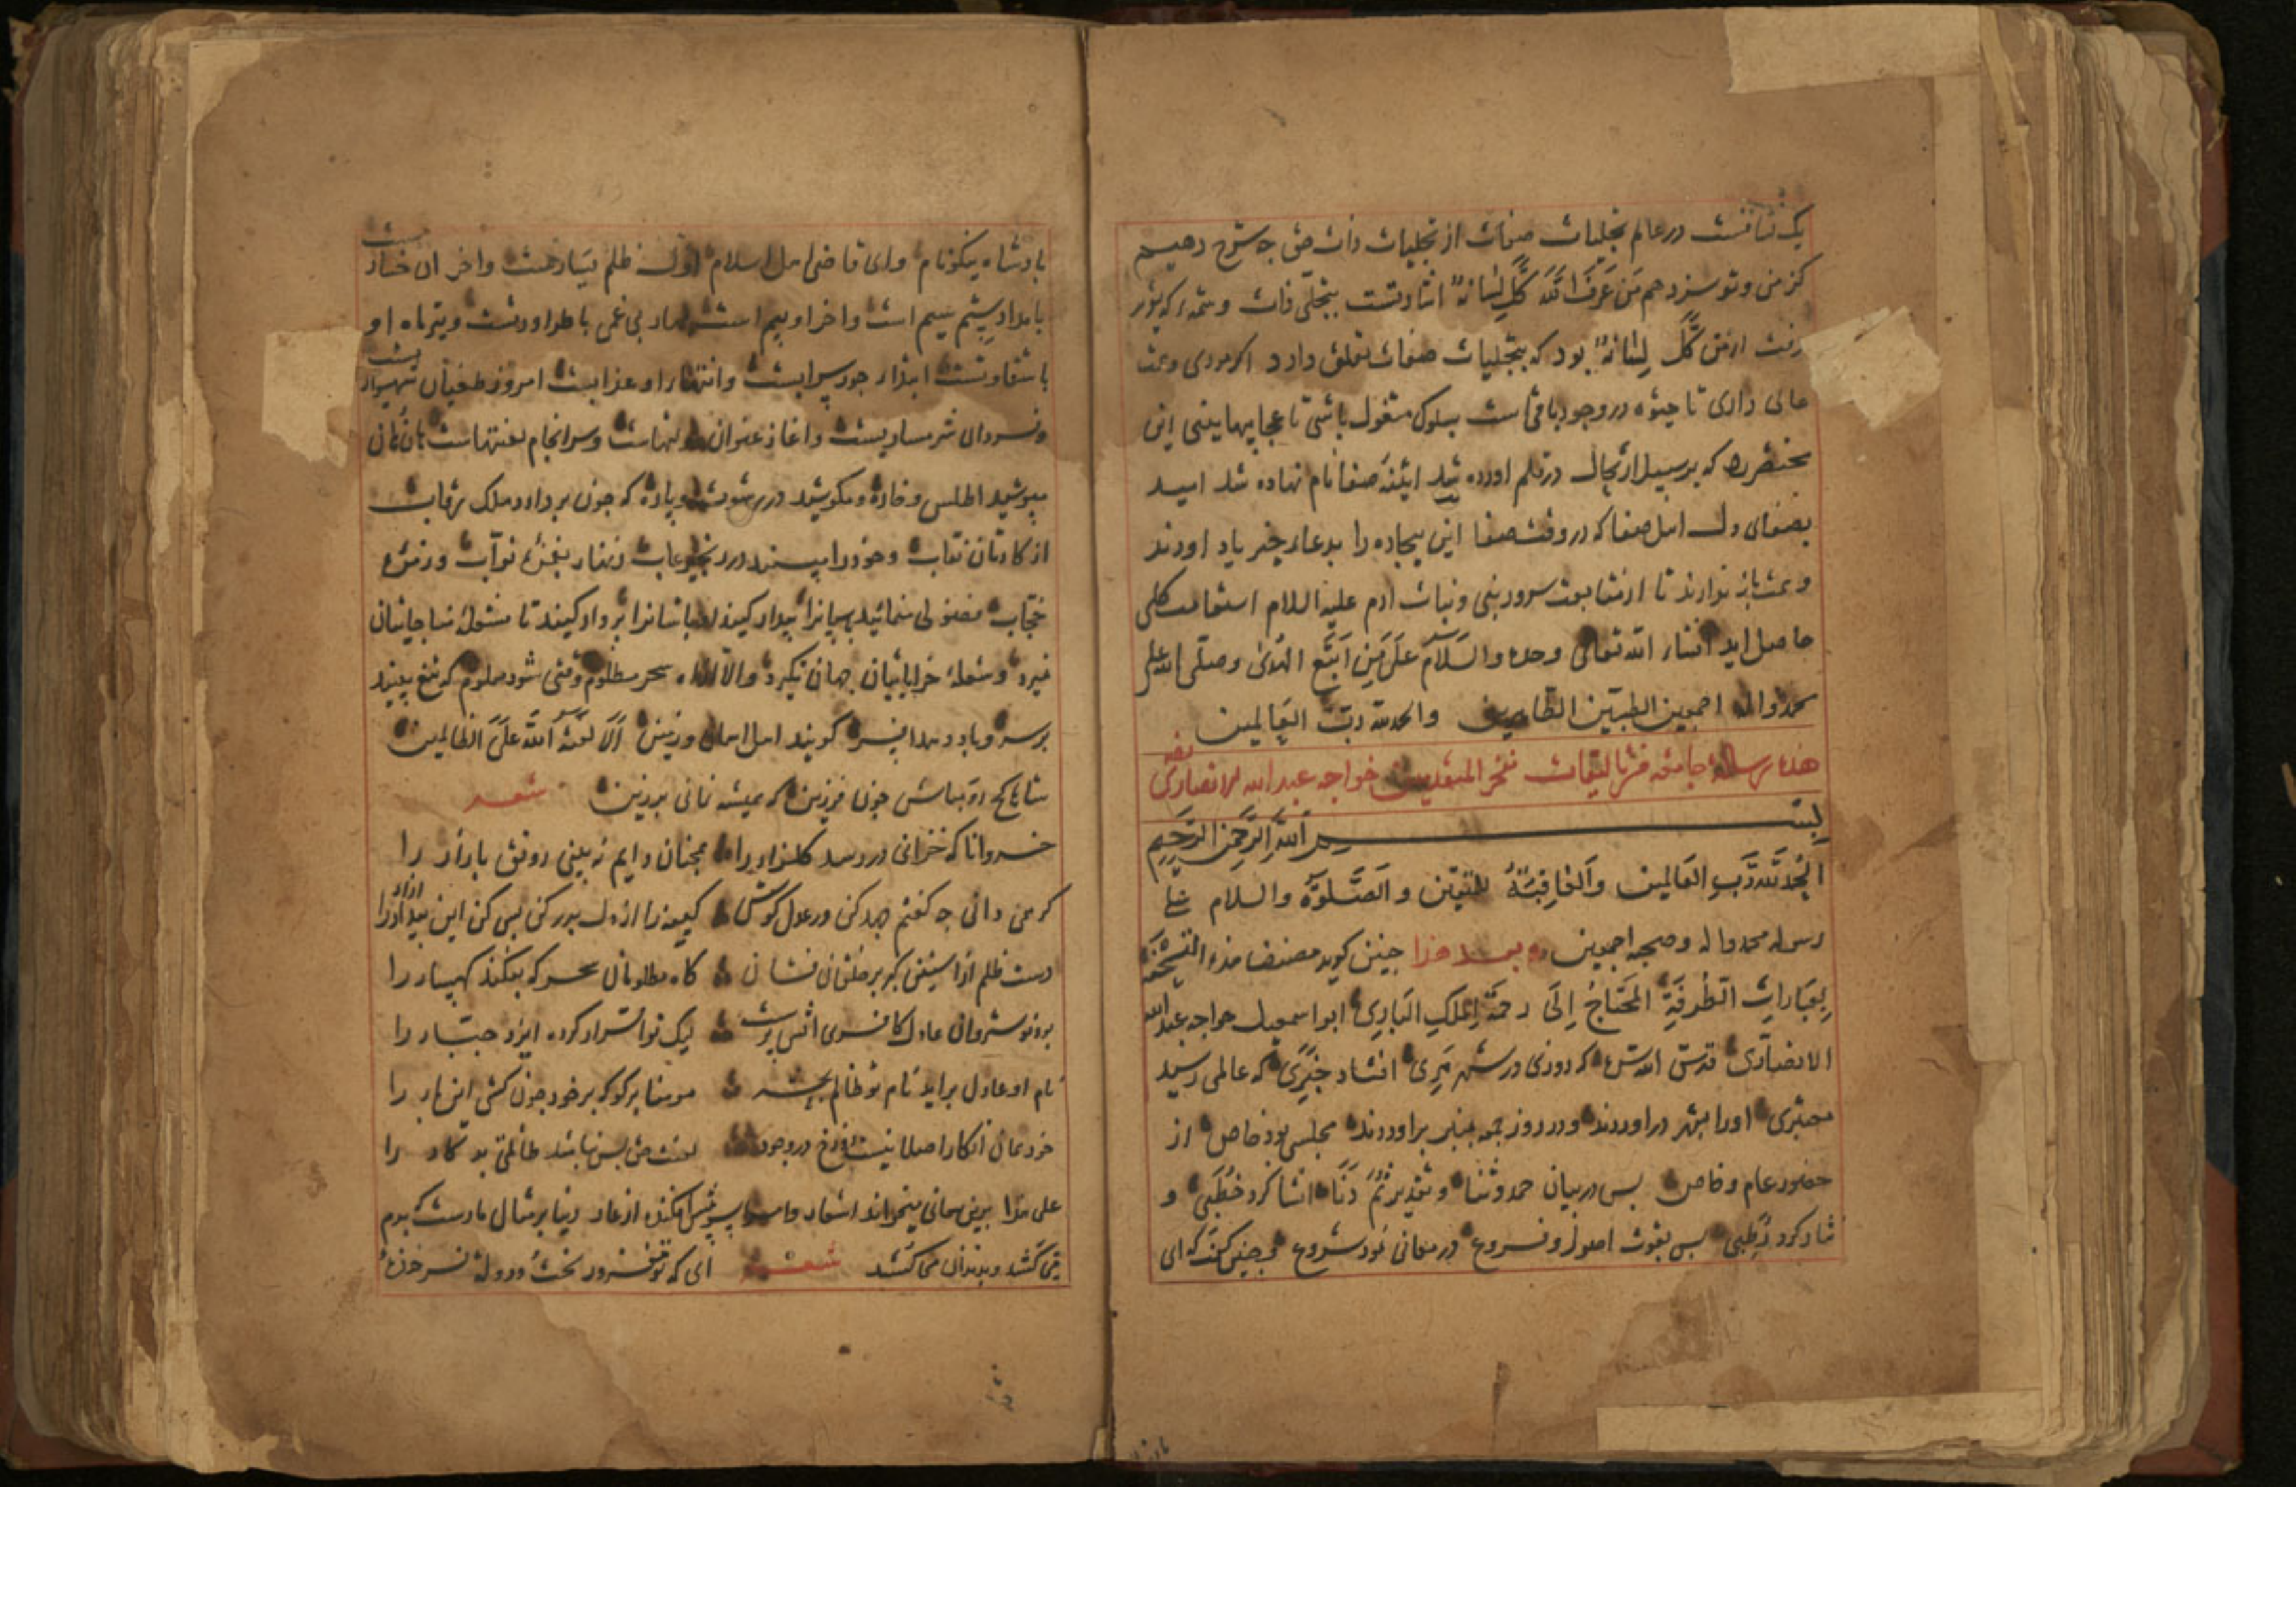 یک شناخت در عالم تجلیات صفات از تجلیات ذات حق چه شرح دهیم
کز من و تو سزد هم من عرف الله کل لسانه اشارتست بتجلی ذات و شمه که
رفت از من کل لسانه بود که بتجلیات صفات تعلق دارد اکر مردی و همت
عالی داری تا در وجود باقی است بسلوک مشغول باشی تا عجایبها بینی این
مختصر را که بر سبیل ارتجال در قلم اورده شد ائینه صفا نام نهاده شد امید
بصفای دل اهل صفا که در وقت صفا این بیچاره را بدعاء خیر یاد اورند
و همت باز ندارند تا از متابعت سرور بنی و نبات ادم علیه السلام استقامت کلی
حاصل اید انشاء الله تعالی وحده والسلام علی من اتبع الهدی وصلی الله علی
محمد واله اجمعین الطیبین الطاهرین والحمد لله رب العالمین
هذه رساله جامعه من تالیفات فخر المتقدمین خواجه عبد الله الانصاری
بسم الله الرحمن الرحیم
الحمد لله رب العالمین والعاقبة للمتقین والصلوة والسلام علی
رسوله محمد واله وصحبه اجمعین و بعد هذا چنین کوید مصنف هذه النسخة
بعبارات الطرفة المحتاج الی رحمة الملک الباری ابو اسمعیل خواجه عبد الله
الانصاری قدس الله سره که روزی در شهر هری افتاد خبری که عالمی رسید
معتبری اورا بشهر در اوردند و در روز جمعه بمنبر بر اوردند مجلسی بود خاص از
حضور عام و خاص پس در بیان حمد و ثنا و تقدیر ثم دنا انشا کرد خطبی و
نثار کرد رطبی پس بقوت اصول و فروع در معانی نمود شروع و چنین کفت که ای
بادشاه نیکونام و ای قاضی اهل اسلام اول ظلم بسیار خفت و اخر ان خسارتست
بامداد ستم سیم است و اخر او بیم است بهار بی غمی با طراوتست و تیرماه او
با شقاوتست ابتداء جور سرابست و انتهاء او عذابست امروز طغیان شهسواریست
و فردا ان شرمساریست و اغاز عنوان دولتهاست و سرانجام لعنتهاست هان هان
مپوشید اطلس و خاره و مکوشید در رشوت و پاره که چون بر دارد ملک رقاب
از کارتان نقاب و خود را ببینند در رنج و عذاب زنهار بغمزه نواب و زمزمه
حجاب مشغولی منمائید را بیدار کنید را بر دار کنید تا مشعله مناجاتیان
نمیرد و شعله خراباتیان جهان نکیرد والا اه سحر مظلوم وقتی شود معلوم که تیغ ببینند
بر سر و باد دهد افسر کویند اهل اسمان و زمین الا لعنة الله علی الظالمین
شاها کج رو مباش چون فرزین که همیشه نمانی بر زین شعر
خسروانا که خزانی در رسد کلزار را همچنان دایم نه بینی رونق بازار را
کر همی دانی چه کفتم جهد کن در عدل کوش کینه را از دل بدر کن بس کن این ازار را
دست ظلم از استین کبر بر خلقان فشان کاه مظلومان سحر که بفکند کهسار را
بد نوشروان عادل کافری اتش پرست لیک تو اقرار کرده ایزد جبار را
نام او عادل براید نام تو ظالم مومنا بر کو که بر خود چون کشی این بار را
خود همان انکار اصلا نیست دوزخ در وجود لعنت حق بس نباشد ظالم بد کار را
علی هذا برین معانی میخواند اشعار و از عار دنیا بر مثال مارست که بدم
می کشد و بدندان می کشد شعر ای که تو مغرور بخت و دولت فرخنده